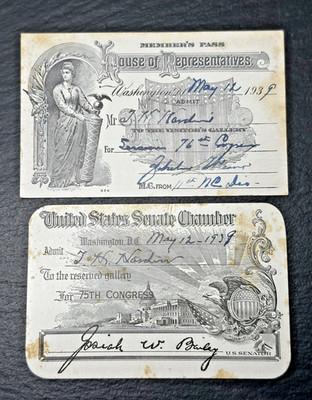 MEMBER'S PASS
House of Representatives,
Washington, D.C. May 12 1939
ADMIT
Mr
TO THE VISITOR'S GALLERY
For Session 76th Congress
M.C. FROM 11th NC Dis
United States Senate Chamber
Washington, D.C. May 12-1939
Admit
To the reserved gallery
For 75TH CONGRESS
Josiah W. Bailey
U.S. SENATOR